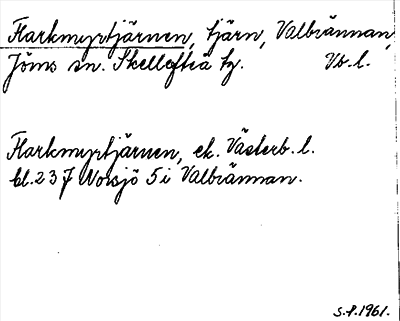 Flarkmyrtjärnen, tjärn, Valbrännan,
Jörns sn. Skellefteå tg. Vb. l.
Flarkmyrtjärnen, ek. Västerb. l.
bl. 237 Norsjö 5 i Valbrännan.
S.P. 1961.